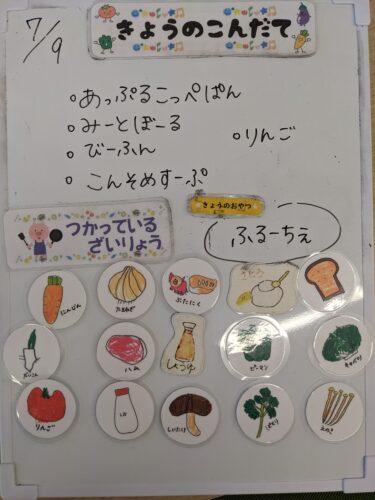 7/9
きょうのこんだて
・あっぷるこっぺぱん
・みーとぼーる
・びーふん
・りんご
・こんそめすーぷ
きょうのおやつ
ふるーちぇ
つかっている
ざいりょう
にんじん
たまねぎ
ぶたにく
だいこん
ハム
しょうゆ
ピーマン
キャベツ
りんご
しいたけ
パセリ
えのき